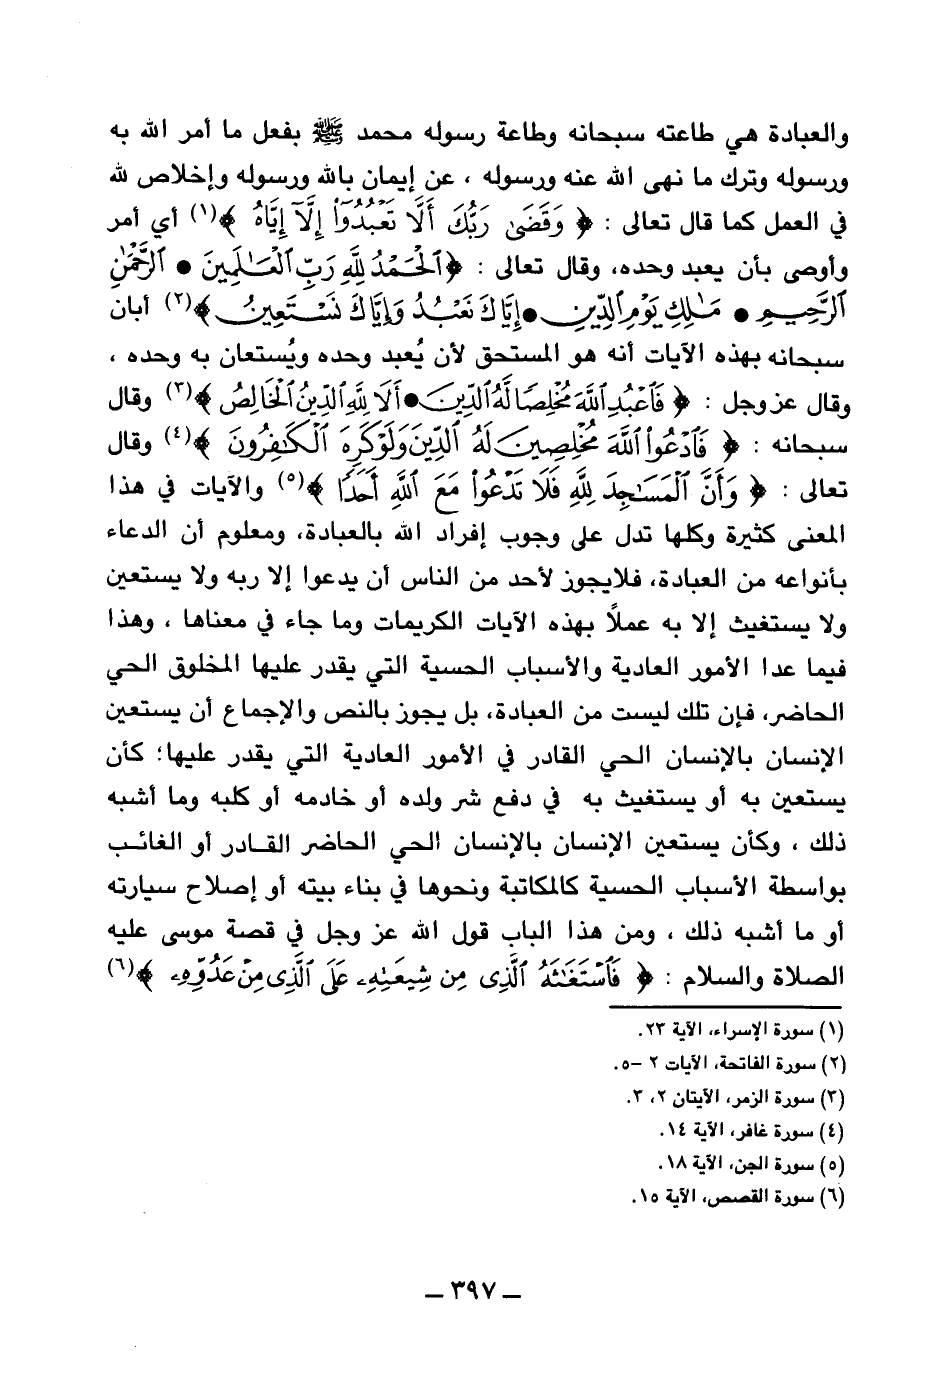 والعبادة هي طاعته سبحانه وطاعة رسوله محمد ﷺ بفعل ما أمر الله به
ورسوله وترك ما نهى الله عنه ورسوله ، عن إيمان بالله ورسوله وإخلاص لله
في العمل كما قال تعالى : ﴿ وَقَضَىٰ رَبُّكَ أَلَّا تَعْبُدُوٓا۟ إِلَّآ إِيَّاهُ ﴾(١) أي أمر
وأوصى بأن يعبد وحده، وقال تعالى : ﴿ ٱلْحَمْدُ لِلَّهِ رَبِّ ٱلْعَٰلَمِينَ ● ٱلرَّحْمَٰنِ
ٱلرَّحِيمِ ● مَٰلِكِ يَوْمِ ٱلدِّينِ ● إِيَّاكَ نَعْبُدُ وَإِيَّاكَ نَسْتَعِينُ ﴾(٢) أبان
سبحانه بهذه الآيات أنه هو المستحق لأن يُعبد وحده ويُستعان به وحده ،
وقال عز وجل : ﴿ فَٱعْبُدِ ٱللَّهَ مُخْلِصًا لَّهُ ٱلدِّينَ ● أَلَا لِلَّهِ ٱلدِّينُ ٱلْخَالِصُ ﴾(٣) وقال
سبحانه : ﴿ فَٱدْعُوا۟ ٱللَّهَ مُخْلِصِينَ لَهُ ٱلدِّينَ وَلَوْ كَرِهَ ٱلْكَٰفِرُونَ ﴾(٤) وقال
تعالى : ﴿ وَأَنَّ ٱلْمَسَٰجِدَ لِلَّهِ فَلَا تَدْعُوا۟ مَعَ ٱللَّهِ أَحَدًا ﴾(٥) والآيات في هذا
المعنى كثيرة وكلها تدل على وجوب إفراد الله بالعبادة، ومعلوم أن الدعاء
بأنواعه من العبادة، فلايجوز لأحد من الناس أن يدعوا إلا ربه ولا يستعين
ولا يستغيث إلا به عملاً بهذه الآيات الكريمات وما جاء في معناها ، وهذا
فيما عدا الأمور العادية والأسباب الحسية التي يقدر عليها المخلوق الحي
الحاضر، فإن تلك ليست من العبادة، بل يجوز بالنص والإجماع أن يستعين
الإنسان بالإنسان الحي القادر في الأمور العادية التي يقدر عليها؛ كأن
يستعين به أو يستغيث به في دفع شر ولده أو خادمه أو كلبه وما أشبه
ذلك ، وكأن يستعين الإنسان بالإنسان الحي الحاضر القادر أو الغائب
بواسطة الأسباب الحسية كالمكاتبة ونحوها في بناء بيته أو إصلاح سيارته
أو ما أشبه ذلك ، ومن هذا الباب قول الله عز وجل في قصة موسى عليه
الصلاة والسلام : ﴿ فَٱسْتَغَٰثَهُ ٱلَّذِى مِن شِيعَتِهِۦ عَلَى ٱلَّذِى مِنْ عَدُوِّهِۦ ﴾(٦)
(١) سورة الإسراء، الآية ٢٣.
(٢) سورة الفاتحة، الآيات ٢ -٥.
(٣) سورة الزمر، الآيتان ٢، ٣.
(٤) سورة غافر، الآية ١٤.
(٥) سورة الجن، الآية ١٨.
(٦) سورة القصص، الآية ١٥.
— ٣٩٧ —